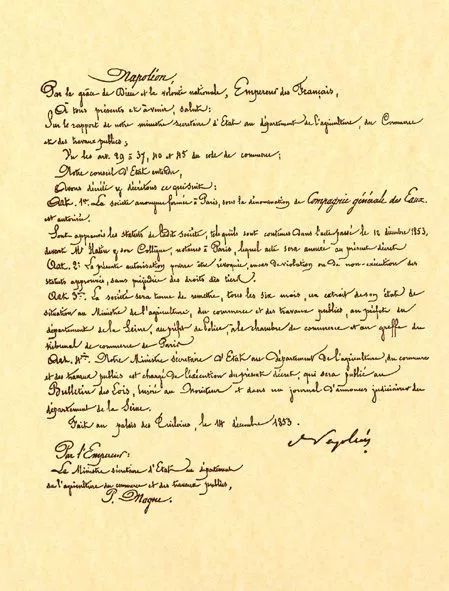 Napoléon,
Par la grâce de Dieu et la volonté nationale, Empereur des Français,
A tous présents et à venir, salut:
Sur le rapport de notre ministre secrétaire d'Etat au département de l'agriculture, du Commerce
et des travaux publics;
Vu les art. 29 à 37, 40 et 45 du code de commerce;
Notre conseil d'Etat entendu,
Avons décrété et décrétons ce qui suit:
Art. 1er. La société anonyme formée à Paris, sous la dénomination de Compagnie générale des Eaux
est autorisée.
Sont approuvés les statuts de dite société, tels qu'ils sont contenus dans l'acte passé le 12 décembre 1853,
devant Me et son Collègue, notaires à Paris, lequel acte sera annexé au présent décret
Art. 2: La présente autorisation pourra être révoquée en cas de violation ou de non-exécution des
statuts approuvés, sans préjudice des droits des tiers.
Art. 3: La société sera tenue de remettre, tous les six mois, un extrait de son état de
situation au Ministre de l'agriculture, du commerce et des travaux publics, au préfet du
département de la Seine, au préfet de Police, à la chambre de commerce et au greffe du
tribunal de commerce de Paris
Art. 4: Notre Ministre Secrétaire d'Etat au Département de l'agriculture, du commerce
et des travaux publics est chargé de l'exécution du présent décret, qui sera publié au
Bulletin des Lois, inséré au Moniteur et dans un journal d'annonces judiciaires du
département de la Seine.
Fait au palais des Tuileries, le 14 décembre 1853.
Napoléon
Par l'Empereur:
Le Ministre secrétaire d'Etat au département
de l'agriculture du commerce et des travaux publics,
P. Magne.